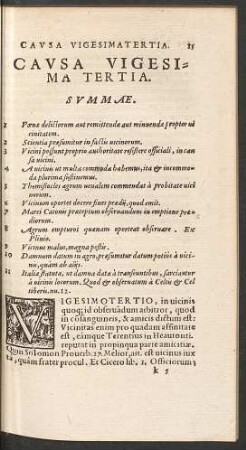 CAVSA VIGESIMATERTIA. 25
CAVSA VIGESI-
MA TERTIA.
SVMMAE.
1 Pœna delictorum aut remittenda aut minuenda propter vi
cinitatem.
2 Scientia præsumitur in factis vicinorum.
3 Vicini possunt propria authoritate resistere officiali, in cau
sa vicini.
4 A vicinis ut multa commoda habemus, ita & incommo-
da plurima sustinemus.
5 Themistocles agrum uenalem commendat à probitate uici
norum.
6 Vicinum oportet decere suos prædij, quod emit.
7 Marci Catonis præceptum obseruandum in emptione præ-
diorum.
8 Agrum empturos quænam oporteat obseruare. Ex
Plinio.
9 Vicinus malus, magna pestis.
10 Damnum datum in agro, præsumitur datum potius à vici-
nis, quàm ab alijs.
11 Italiæ statuta, ut damna data à transeuntibus, sarciantur
à vicinis locorum. Quod & obseruatum à Celtis & Cel
tiberis. nu. 12.
VIGESIMOTERTIO, in uicinis
quoq; id obseruādum arbitror, quod
in cōsanguineis, & amicis dictum est:
Vicinitas enim pro quadam affinitate
est, eāmque Terentius in Heautonti.
reputat in propinqua parte amicitiæ.
Qum Solomon Prouerb. 27. Melior, ait, est uicinus iux
ta, quàm frater procul. Et Cicero lib. 1. Officiorum;
k 5